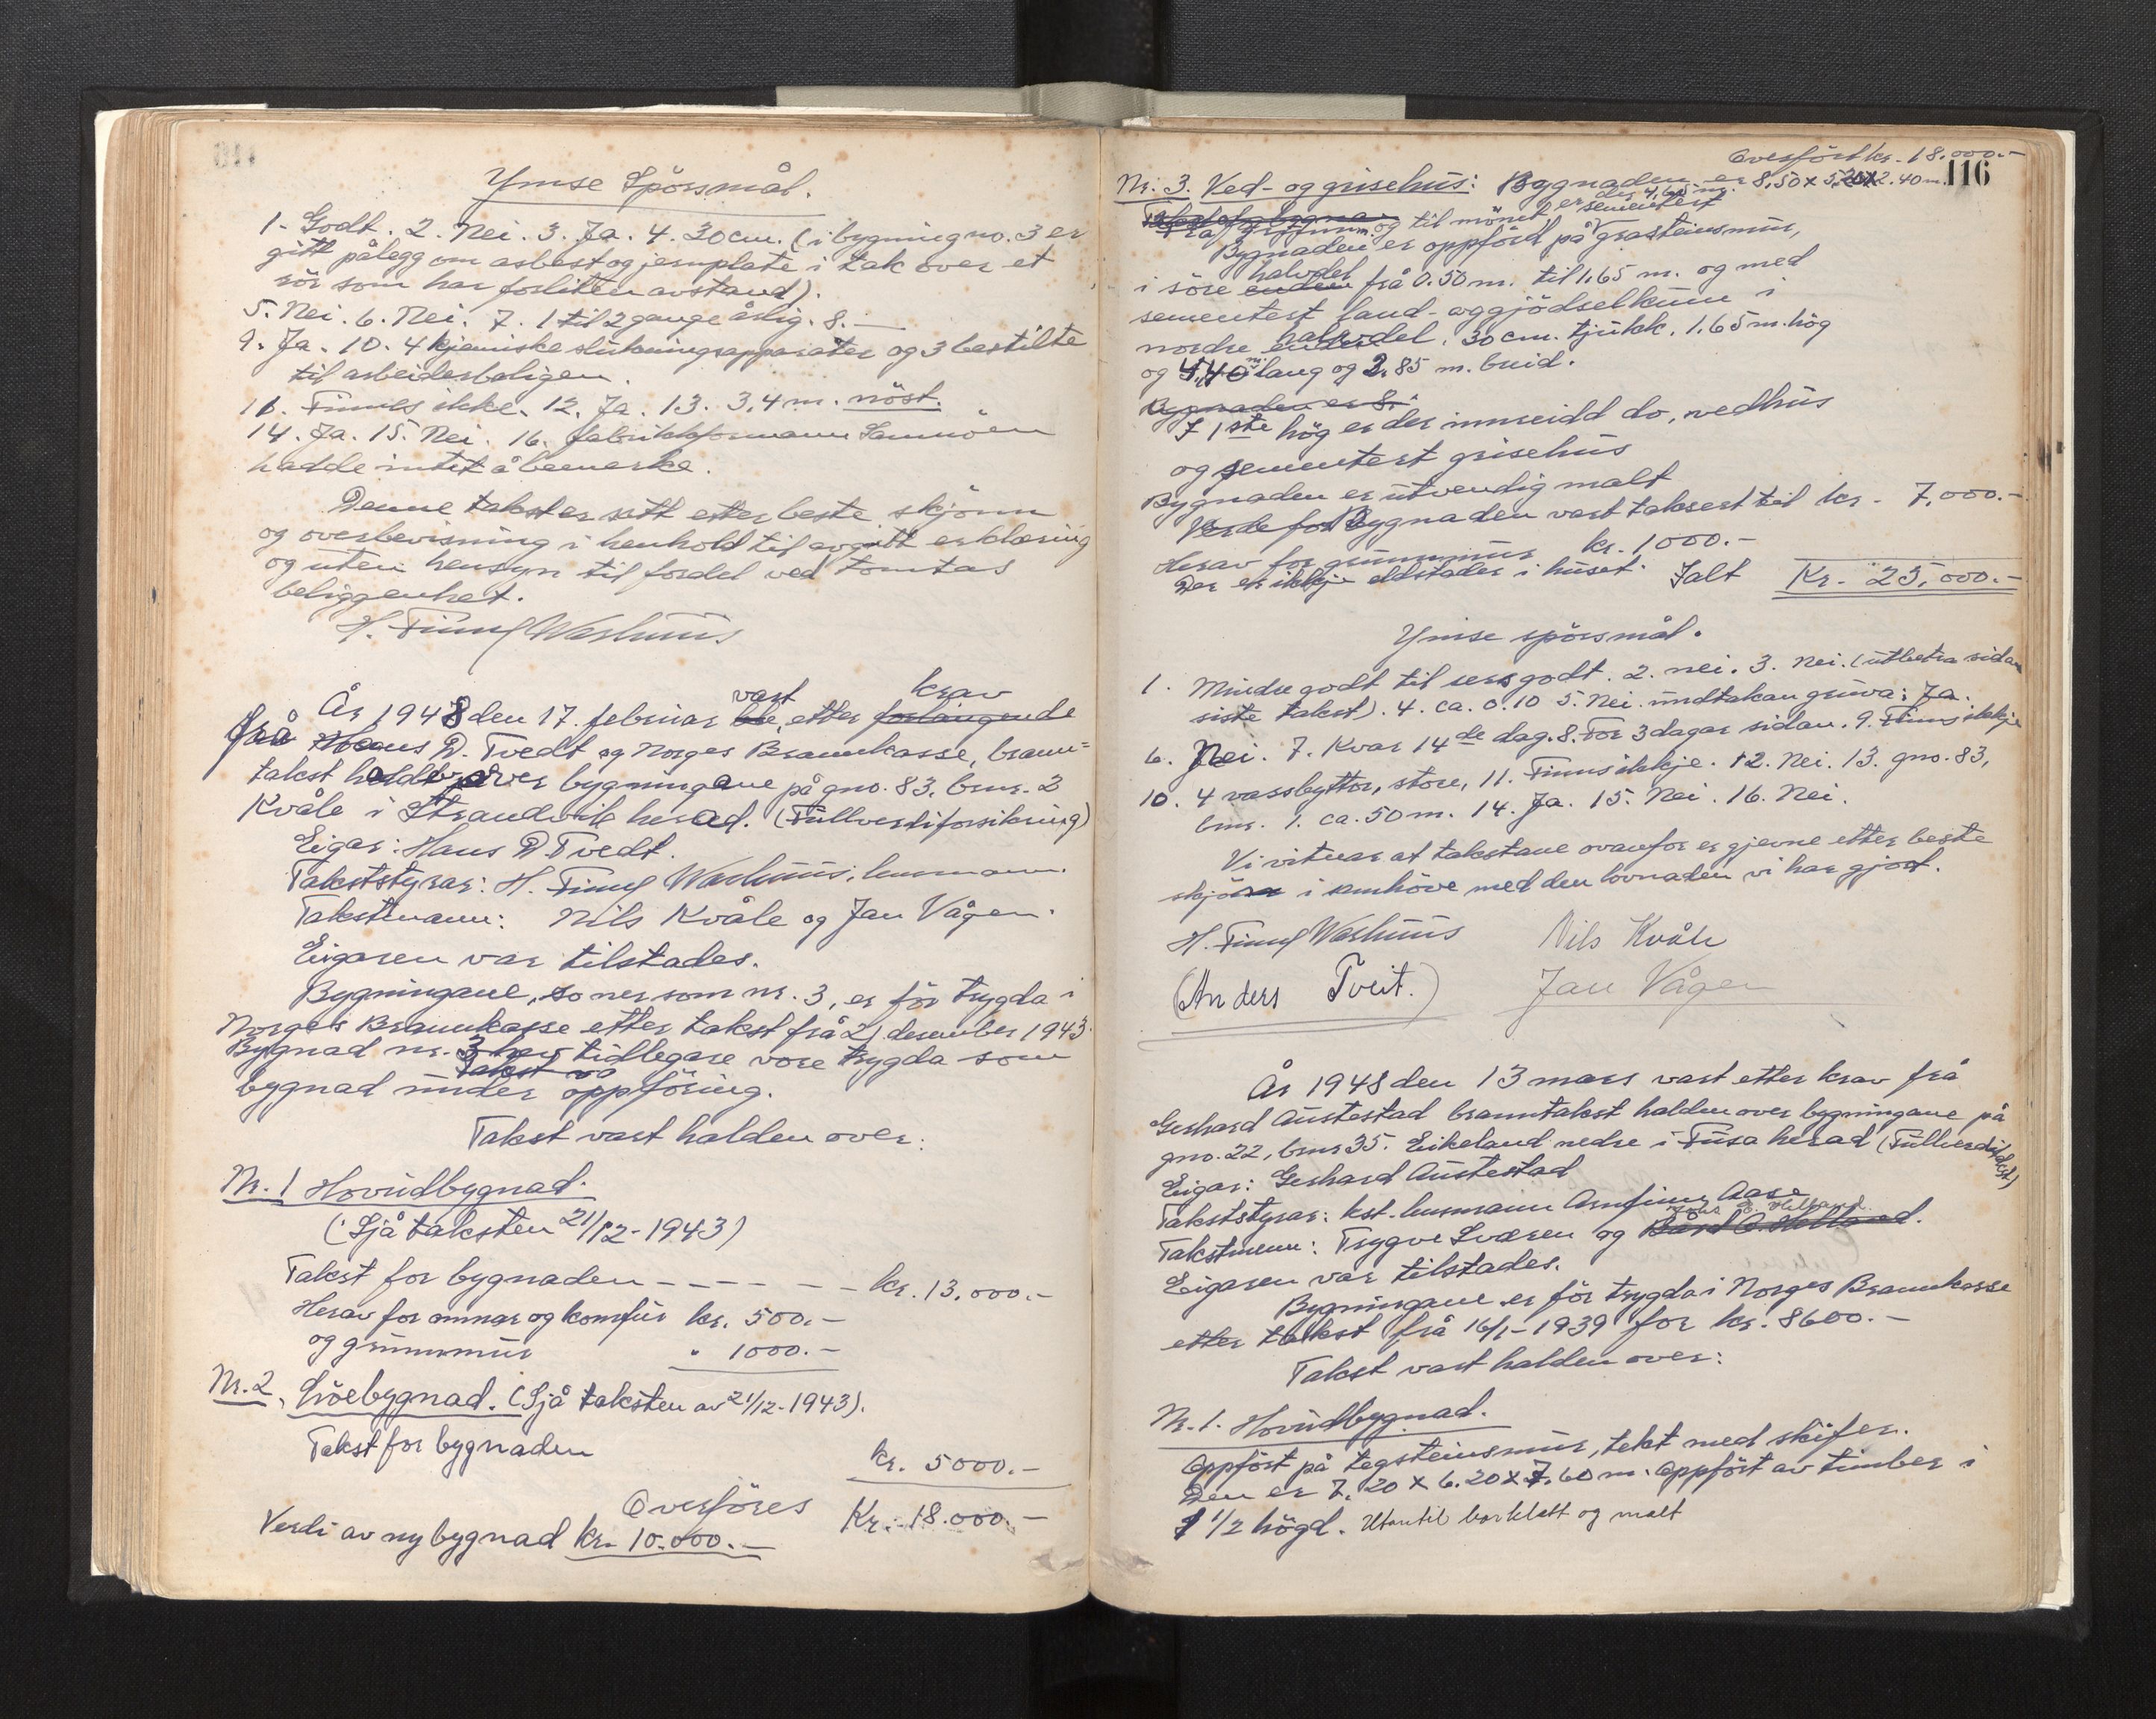 Ymse Spörsmål.
1. Godt. 2. Nei. 3. Ja. 4. 30 cm. (i bygning no. 3 er
gitt pålegg om asbest og jernplate i tak over et
rör som har forliten avstand).
5. Nei. 6. Nei. 7. 1 til 2 gange årlig. 8. —
9. Ja. 10. 4 kjemiske slukningsapparater og 3 bestilte
til arbeiderboligen.
11. Finnes ikke. 12. Ja. 13. 3,4 m. nöst.
14. Ja. 15. Nei. 16. fabrikkformann Samnöen
hadde intet å bemerke.
Denne takst er satt etter beste skjönn
og overbevisning i henhold til avgitt erklæring
og uten hensyn til fordel ved tomtas
beliggenhet.
H. Finng Warhuus
År 1948 den 17. februar vart etter krav
frå Hans D. Tvedt og Norges Brannkasse, brann=
takst halden over bygningane på gno. 83, bnr. 2
Kvåle i Strandvik herad. (Fullverdiforsikring)
Eigar: Hans D Tvedt.
Takststyrar: H. Finng Warhuus, lensmann.
Takstmann: Nils Kvåle og Jan Vågen.
Eigaren var tilstades.
Bygningane, so ner som nr. 3, er för trygda i
Norges Brannkasse etter takst frå 21 desember 1943.
Bygnad nr. 3 hev tidlegare vore trygda som
bygnad under oppföring.
Takst vart halden over:
Nr. 1 Hovudbygnad.
(Sjå taksten 21/12-1943)
Takst for bygnaden - - - - - - kr. 13.000.-
Herav for omnar og komfur kr. 500.-
og grunnmur " 1000.-
Nr. 2. Löebygnad. (Sjå taksten av 21/12-1943).
Takst for bygnaden
kr. 5000.-
Overföres Kr. 18.000.-
Verdi av ny bygnad kr. 10.000.-
Overfört kr. 18.000.-
116
Nr. 3. Ved- og grisehus: Bygnaden er 8,50 x 5,20 x 2.40 m.
og til mönet er der 4,65 m.
Bygnaden er oppförd på sementert gråsteinsmur,
i söre halvdel frå 0.50 m. til 1,65 m. og med
sementert land- og gjödselkum i
nordre halvdel. 30 cm. tjukk. 1.65 m. hög
og 4,40 m. lang og 2,85 m. breid.
Bygnaden er 8.
I 1ste hög er der innreidd do, vedhus
og sementert grisehus
Bygnaden er utvendig malt
Verde for Bygnaden vart taksert til kr. 7.000.-
Herav for grunnmur kr. 1000.-
Der er ikkje eldstader i huset. Ialt Kr. 25,000.-
Ymse spörsmål.
1. Mindre godt til sers godt. 2. nei. 3. Nei. (utbetra sidan
siste takst). 4. ca. 0.10 5. Nei. undtakan gruva: Ja.
6. Nei. 7. Kvar 14de dag. 8. For 3 dagar sidan. 9. Finns ikkje
10. 4 vassbyttor, store, 11. Finns ikkje. 12. Nei. 13. gno. 83,
bnr. 1. ca. 50 m. 14. Ja. 15. Nei. 16. Nei.
Vi vitnar at takstane ovanfor er gjevne etter beste
skjön i samhöve med den lovnaden vi har gjort.
H. Finng Warhuus Nils Kvåle
(Anders Tveit.) Jan Vågen
År 1948 den 13 mars vart etter krav frå
Gerhard Austestad branntakst halden over bygningane på
gno. 22, bnr 35. Eikeland nedre i Fusa herad (Fullverditakst)
Eigar: Gerhard Austestad
Takststyrar: kst. lensmann Arnfinn Aase
Takstmenn: Trygve Sværen og Bård O. Helland.
Eigaren var tilstades.
Bygningane er för trygda i Norges Brannkasse
etter takst frå 16/1-1939 for kr. 8600.-
Takst vart halden over:
Nr. 1. Hovudbygnad.
Oppfört på tegsteinsmur, tekt med skifer.
Den er 7.20 x 6.20 x 7.60 m. Oppfört av timber i
1 1/2 högd. Utantil bordklätt og malt